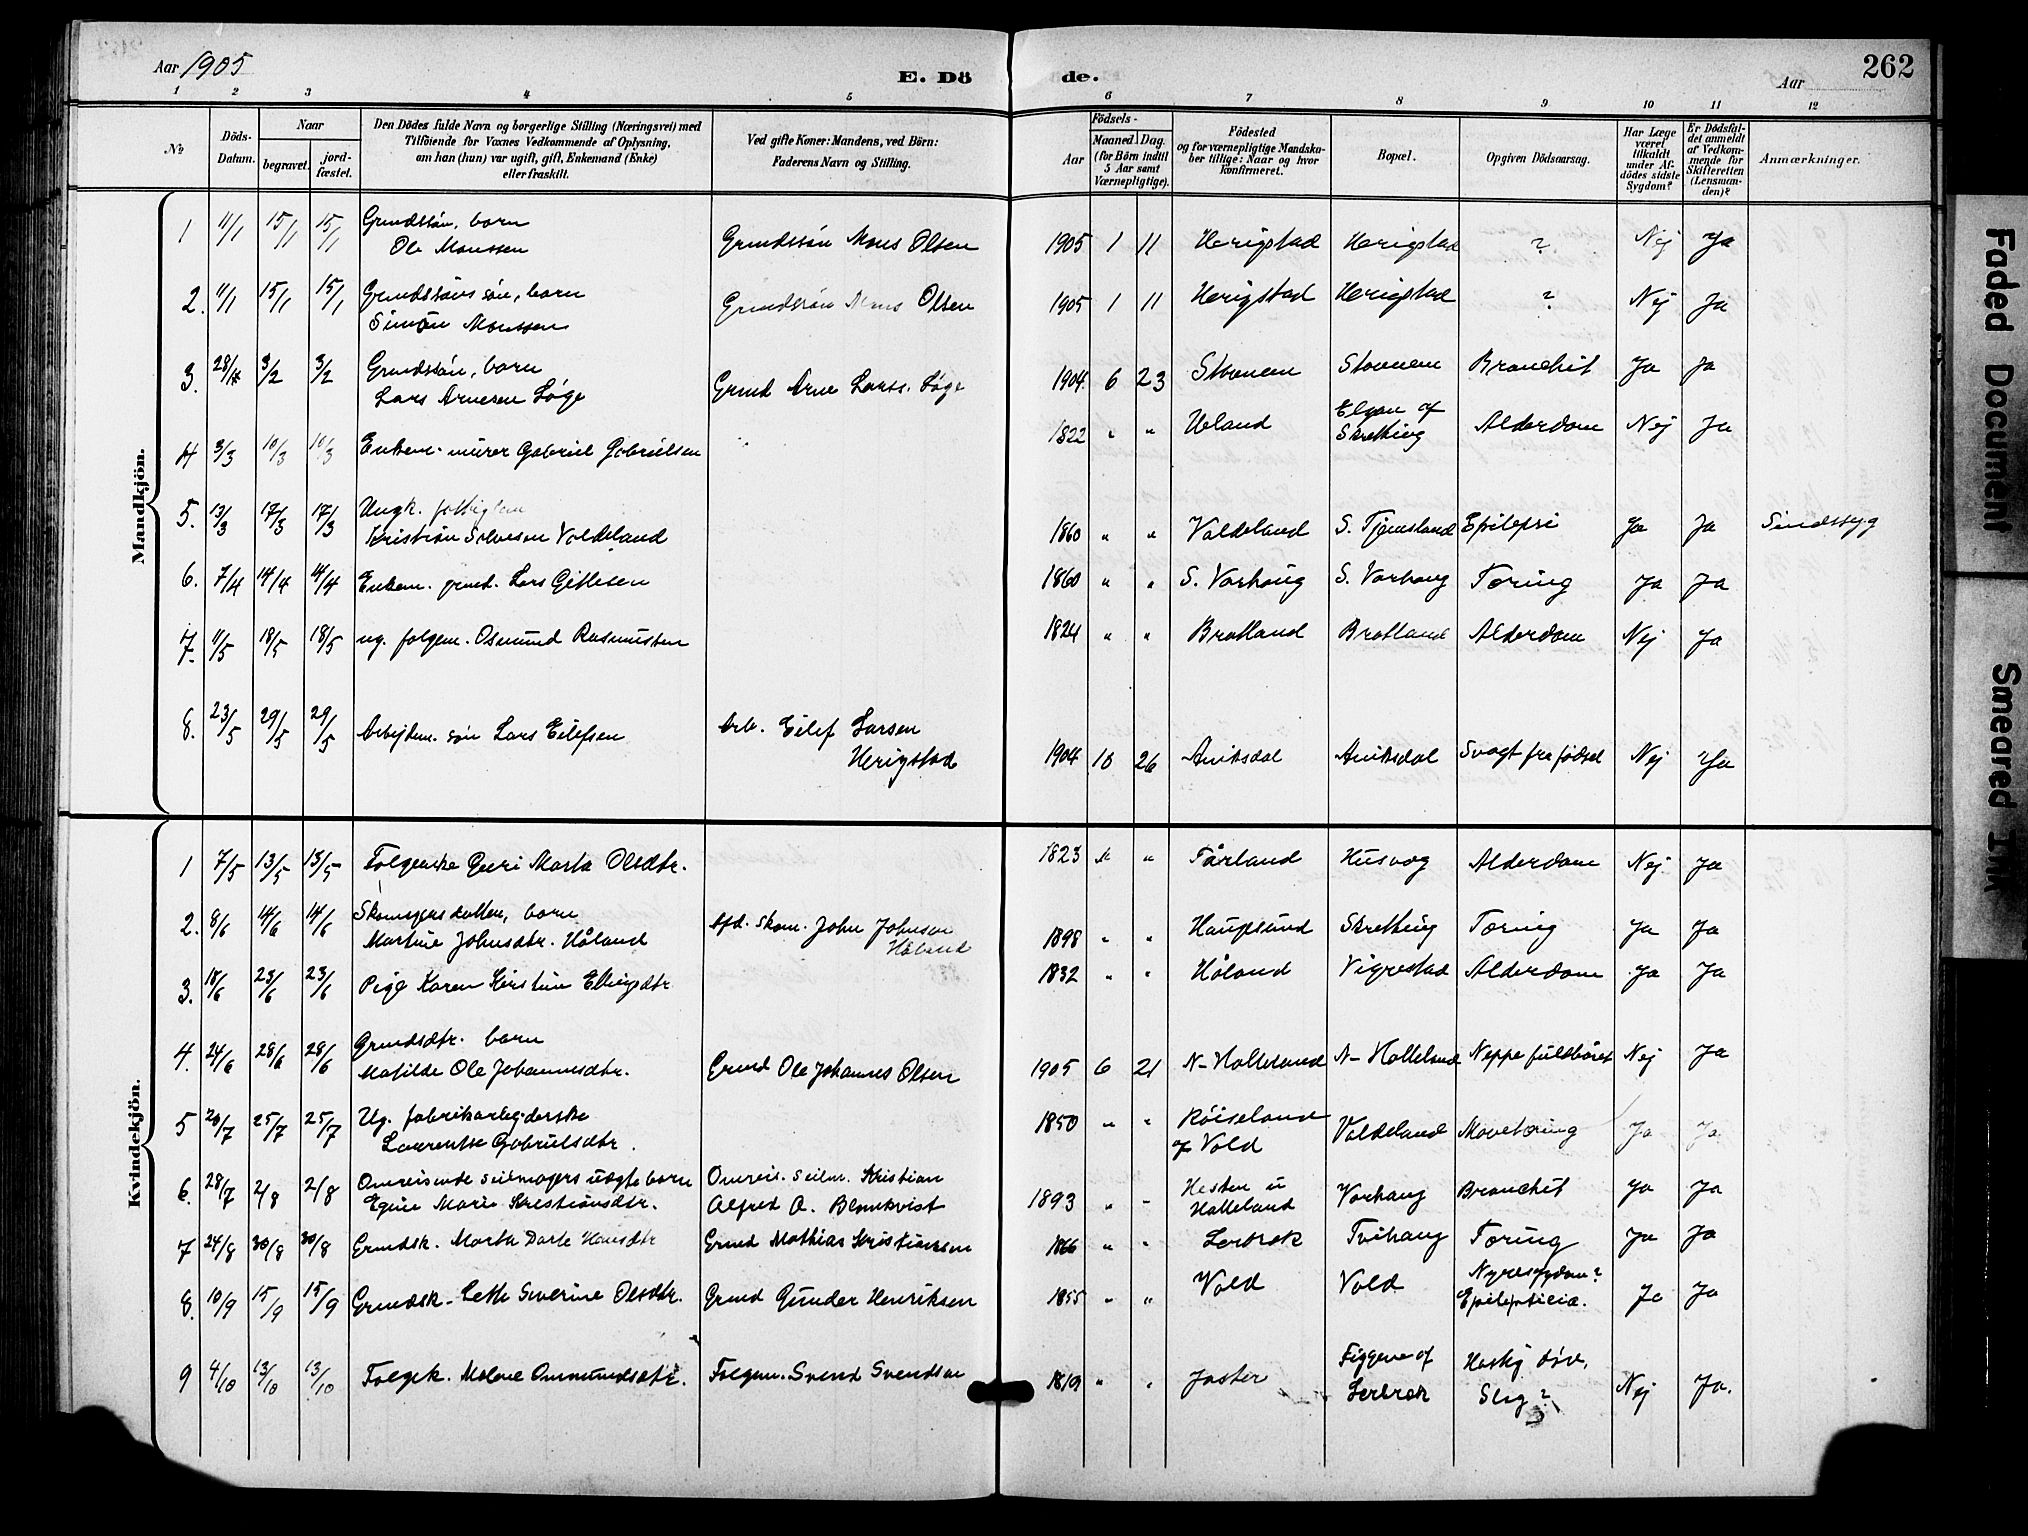 Aar 1905
E. Dö
de.
Aar
262
1 2 3 4 5 6 7 8 9 10 11 12
No
Döds-Datum.
Naar
begravet.
jord-fæstet.
Den Dödes fulde Navn og borgerlige Stilling (Næringsvei) med
Tilföiende for Voxnes Vedkommende af Oplysning,
om han (hun) var ugift, gift, Enkemand (Enke)
eller fraskilt.
Ved gifte Koner: Mandens, ved Börn:
Faderens Navn og Stilling.
Födsels-
Aar
Maaned. Dag.
(for Börn indtil
5 Aar samt
Værnepligtige).
Födested
og for værnepligtige Mandska-
ber tillige: Naar og hvor
konfirmeret.
Bopæl.
Opgiven Dödsaarsag.
Har Læge
været
tilkaldt
under Af-
dödes sidste
Sygdom?
Er Dödsfal-
det anmeldt
af Vedkom-
mende for
Skifteretten
(Lensman-
den)?
Anmærkninger.
Mandkjön.
1 11/1 15/1 15/1 Grundssøn, barn
Ole Monssen Grundssøn Mons Olsen 1905 1 11 Herigstad Herigstad ? Nej Ja
2. 11/1 15/1 15/1 Grundssøns søn, barn
Simon Monssen Grundssøn Mons Olsen 1905 1 11 Herigstad Herigstad ? Nej Ja
3. 3/2 3/2 Grundssøn, barn
Lars Arnesen Løge Grund Arne Larss. Løge 1904 6 23 Stovnem Stovnem Bronchit Ja Ja
4 3/3 10/3 10/3 Enkem. murer Gabriel Gabrielsen 1822 " " Ueland Elgan af
Skretting Alderdom Nej Ja
5. 13/3 17/3 17/3 Ungk.
Kristian Salvesen Valdeland 1860 " " Valdeland S. Tjemsland Epilepsi Ja Ja Sindssyg
6. 7/4 14/4 14/4 Enkem. grmd. Lars Gitlesen 1860 " " S. Varhoug S. Varhoug Tæring Ja Ja
7. 11/5 18/5 18/5 ug. folgem. Osmund Rasmussen 1824 " " Bratland Bratland Alderdom Nej Ja
8. 23/5 29/5 29/5 Arbejdem. søn Lars Eilefsen Arb. Eilef Larsen
Herigstad 1904 10 26 Aniksdal Aniksdal Svagt fra fødsel Nej Ja
Kvindekjön.
1 7/5 13/5 13/5 Folgenke Guri Marta Olsdtr. 1823 " " Tårland Husvog Alderdom Nej. Ja
2. 8/6 14/6 14/6 Skomagersdatter, barn
Martine Johnsdtr. Håland Afd. Skom. John Johnsen
Håland 1898 " " Haugesund Skretting Tæring Ja Ja
3. 18/6 23/6 23/6 Pige Karen Kirstine Ellingsdtr 1832 " " Håland Vigrestad Alderdom Ja Ja
4. 24/6 28/6 28/6 Grundsdtr. barn
Matilde Ole Johannesdtr. Grund Ole Johannes Olsen 1905 6 21 N-Holleland N-Holleland Neppe fuldbåret Nej Ja
5 20/7 25/7 25/7 Ug. fabrikarbejderske
Laurentse Gabrielsdtr. 1850 " " Røiseland
af Vold Valdeland Mavetæring Ja Ja
6. 28/7 2/8 2/8 Omreisende seilmagers uægte barn
Egine Marie Kristiansdtr. Omreis. seilm. Kristian
Alfred A. Blomkvist 1893 " " Holleland Varhaug Bronchit Ja Ja
7 24/8 30/8 30/8 Grundsk. Marta Dorte Hansdtr Grund Mathias Kristiansen 1866 " " Lerbrek Tvihaug Tæring Ja Ja
8. 10/9 15/9 15/9 Grundsk. Lette Severine Olsdtr. Grund Gunder Henriksen 1855 " " Vold Vold Nyresygdom?
Epilepticia. Ja Ja
9 4/10 13/10 13/10 Folgek. Malene Ommundsdtr. Folgem. Svend Svendsen 1819 " " Joster Figgene af
Lerbrek Nej Ja.
Faded Document
Smeared Ink